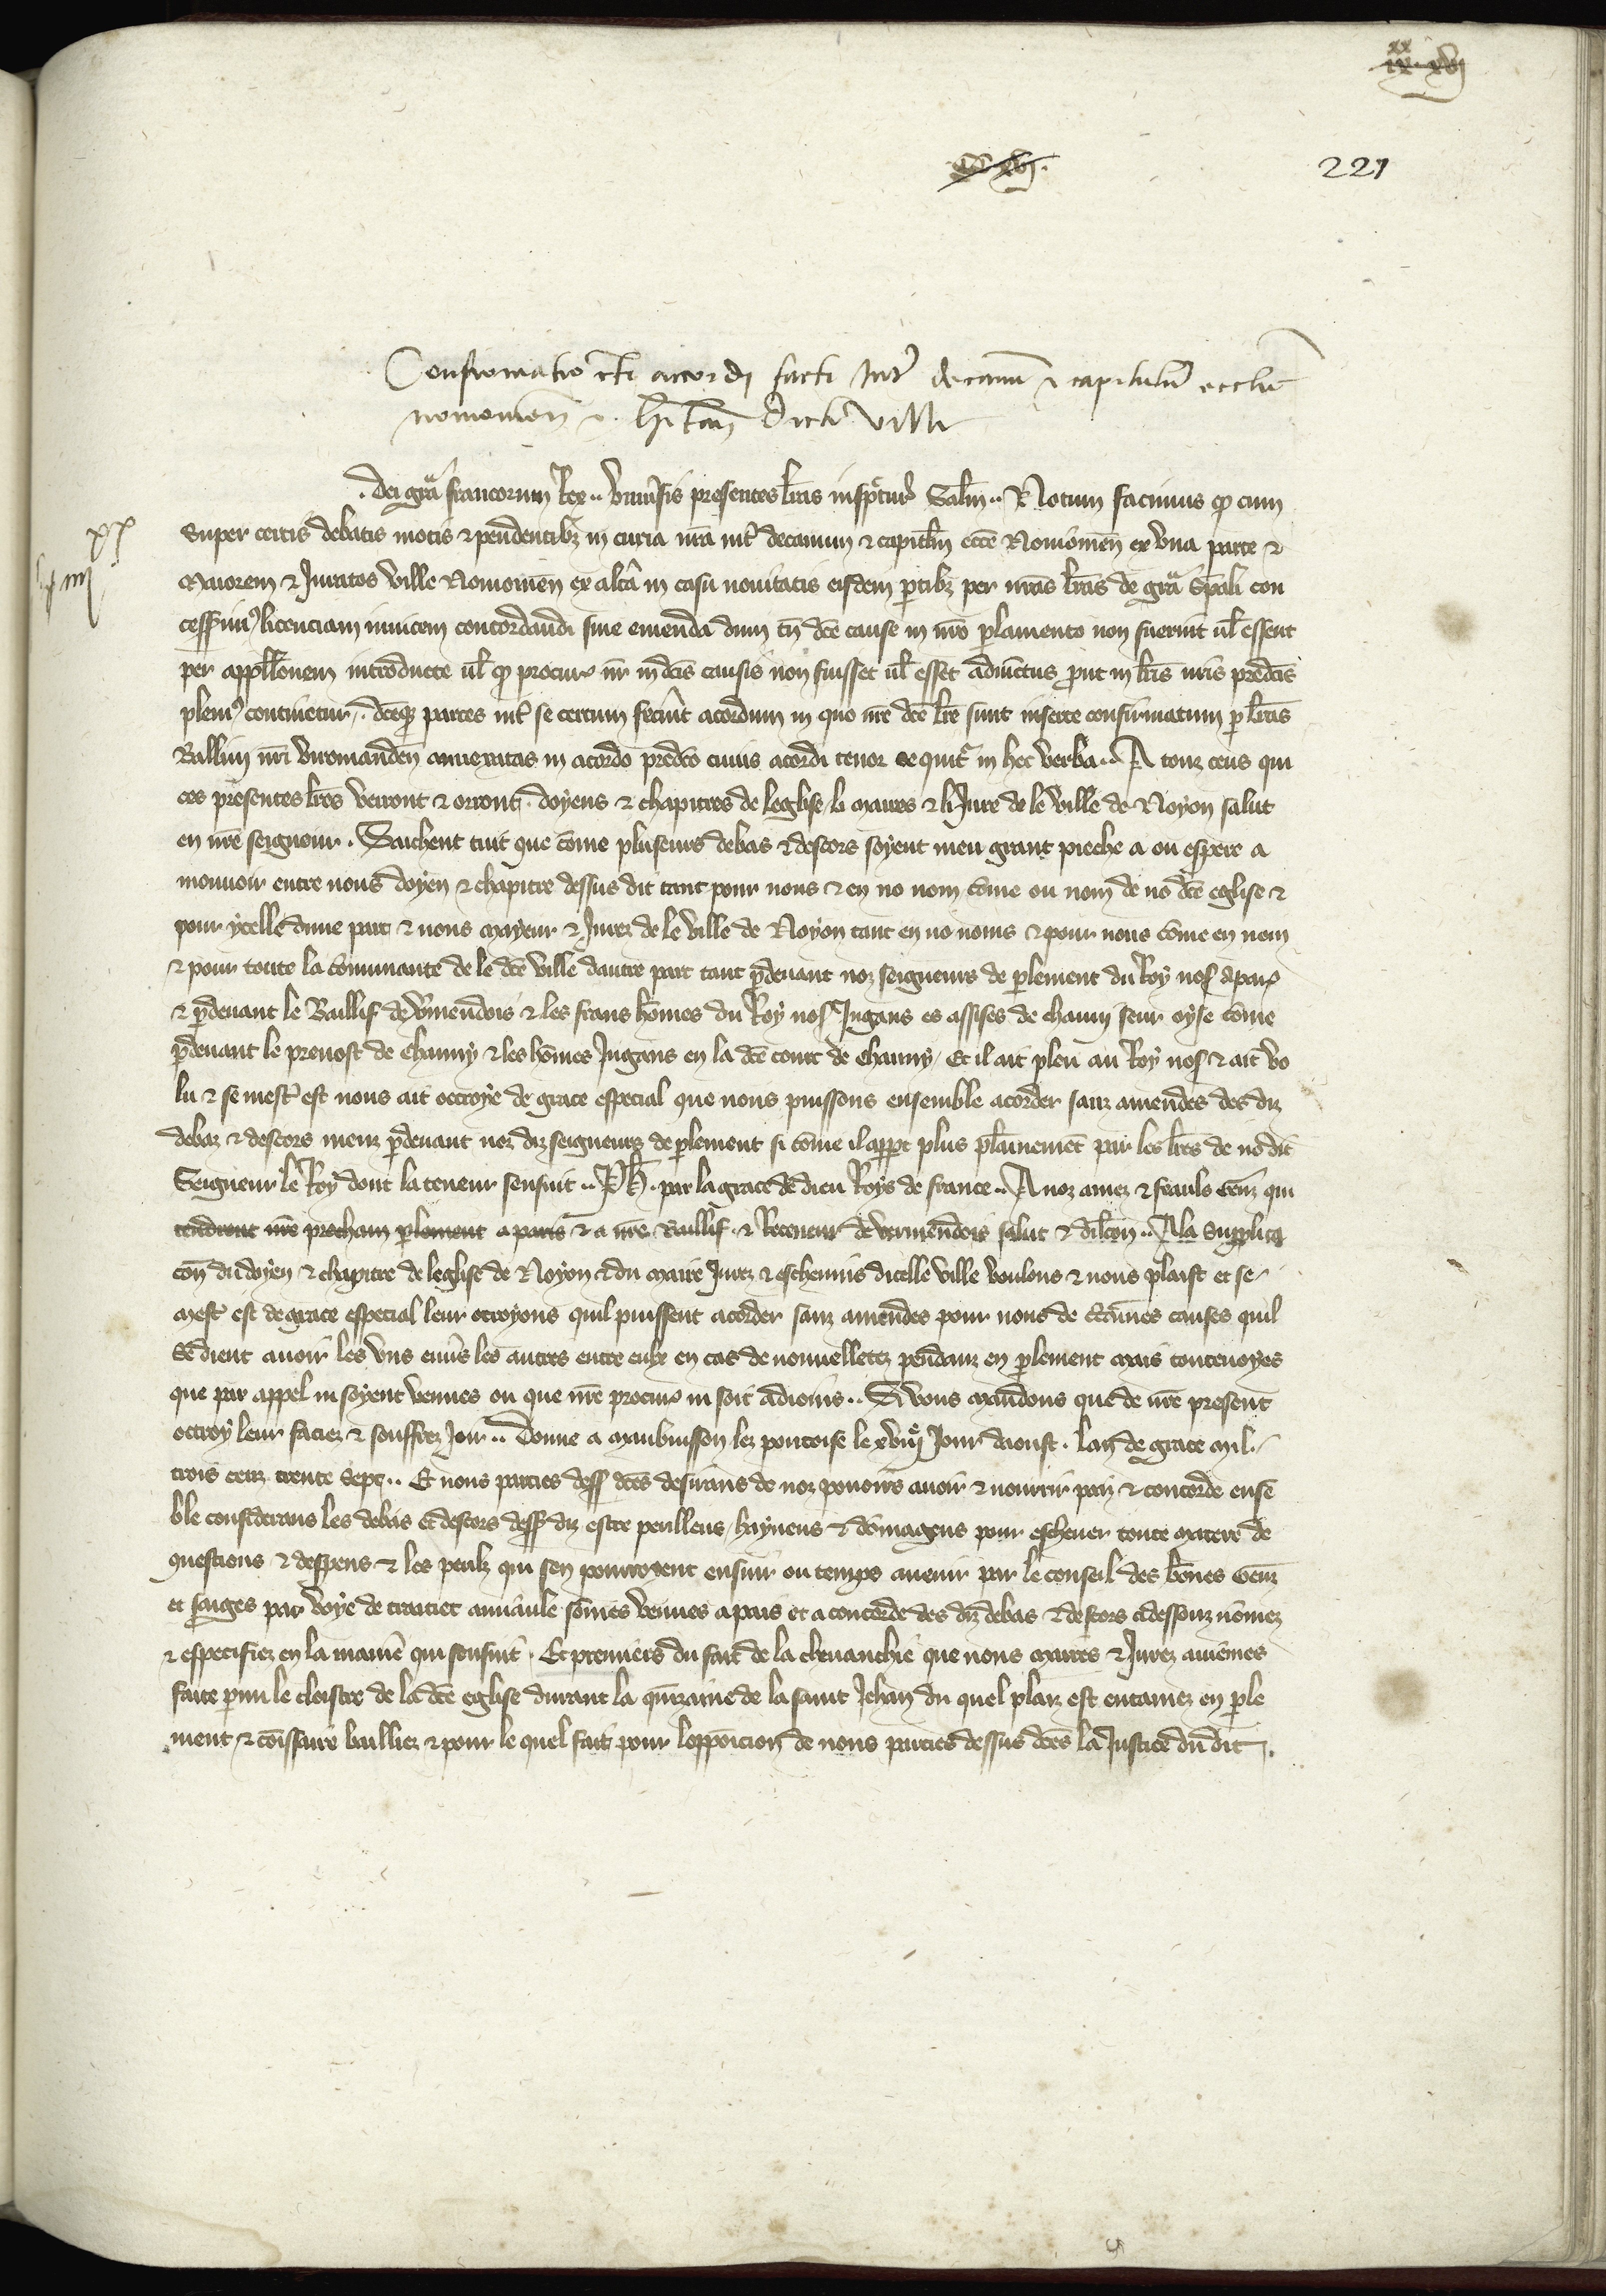 221
Confirmatio certi accordi facti inter decanum & capitulum ecclesie
noviomen & habitan dicte ville
dei gra francorum Rex .. Universis presentes lras inspecturis Salm .. Notum facimus qd cum
super certis debatis motis & pendentibz in curia nra int decanum & capitlm ecce Noviomen ex una parte &
Maiorem & Juratos ville Noviomen ex altera in casu novitatis eisdem partibz per nras lras de gra spali con
cessim9 licenciam invicem concordandi sine emenda dum tn dce cause in nro parlamento non fuerint vl essent
per appellonem introducte vl qd procur nr in dcis causis non fuisset vl esset adiunctus prout in lris nris predcis
pleni9 continetur . dceqz partes int se certum fecerunt acordum in quo nre dce lre sunt inserte confirmatum per lras
Ballivi nri viromanden annexatas in acordo predco cuius acordi tenor sequitr in hec verba .. A touz ceus qui
ces presentes lres verront & orront . doyens & chapitres de leglise li maires & li Jure de le ville de Noyon salut
en nre seignour . Sachent tuit que come pluseurs debas & descors soyent meu grant pieche a ou espere a
mouvoir entre nous doyen & chapitre dessus dit tant pour nous & en no nom come ou nom de no dce eglise &
pour ycelle dune part & nous mayeur & Jurez de le ville de Noyon tant en no noms & pour nous come en nom
& pour toute la communaute de le dce ville dautre part tant pardevant noz seigneurs de parlement du Roy nos a par
& pardevant le Baillif de vermendois & les frans homes du Roy nos Jugans es assises de chauny seur oyse come
pardevant le prevost de chauny & les homes Jugans en la dce court de chauny / Et il ait pleu au Roy nos & ait vo
lu & se mest est nous ait ottroye de grace especial que nous puissons ensemble acorder sanz amendes des diz
debaz & descors meuz pardevant noz diz seigneurs de parlement si come il appt plus plainemet par les lres de no dit
Seigneur le Roy dont la teneur sensuit .. Ph . par la grace de dieu Roys de france .. A noz amez & feauls Genz qui
tendront nre prochain parlement a paris & a nre Baillif & Receveur de vermendois salut & dilcon .. A la supplica
con du doyen & chapitre de leglise de Noyon & du maire Jurez & eschevins dicelle ville voulons & nous plaist et se
mest est de grace especial leur ottroyons quil puissent acorder sanz amendes pour nous de certaines causes quil
se dient avoir les uns envers les autres entre eulx en cas de nouvelletez pendanz en parlement mais toutevoyes
que par appel ni soyent venues ou que nre procur ni soit adioins .. Si vous mandons que de nre present
ottroy leur faciez & souffrez Joir .. Donne a maubuisson lez pontoise le xviije Jour daoust . lan de grace mil
trois cenz trente sept .. Et nous parties dess dces desirans de noz povoirs avoir & nourrir paiz & concorde ense
ble considerans les debas & descors dess diz estre perilleus / hayneus & domageus pour eschever toute matere de
questions & despens & les perilz qui sen pourroyent ensuir ou temps avenir par le conseil des bones Genz
et saiges par voye de traitiet amiaule somes venues a pais et a concorde des diz debas & descors ci dessouz nomez
& especifiez en la manie qui sensuit . Et premiers du fait de la chevauchie que nous maires & Jurez aviemes
faite parmi le cloistre de la dce eglise durant la quinzaine de la saint Jehan du quel plaiz est entamez en parle
ment & comissaire bailliez & pour le quel fait pour loppoicion de nous parties dessus dces la Justice du dit